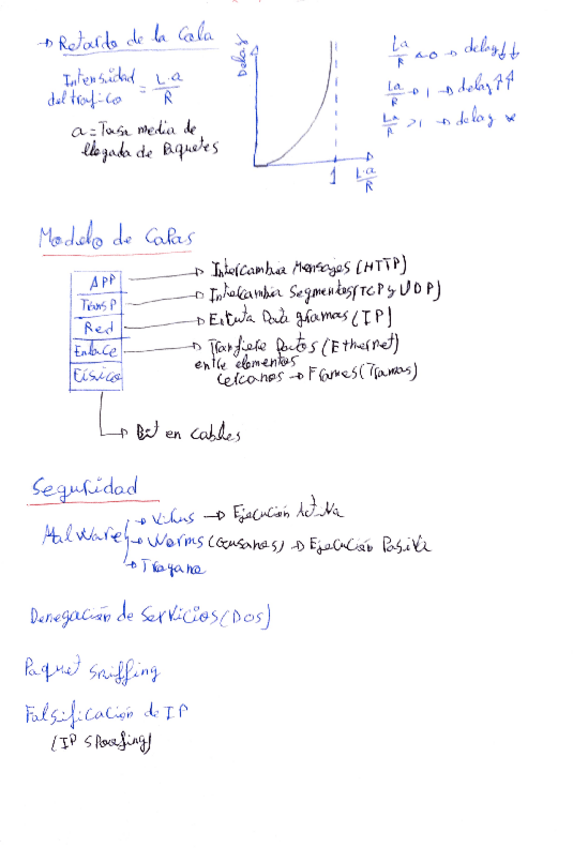 → Retardo de la Cola
Intensidad del trafico = L.a / R
a = Tasa media de
llegada de Paquetes
Delay
1
L.a / R
La / R ~0 → delay ↓↓
La / R → 1 → delay ↑↑
La / R >1 → delay ∞
Modelo de Capas
APP → Intercambia Mensajes (HTTP)
Transp → Intercambia Segmentos (TCP y UDP)
Red → Enruta Datagramas (IP)
Enlace → Tranfiere Datos (Ethernet)
entre elementos
cercanos → Frames (Tramas)
Físico
→ Bit en cables
Seguridad
Malware
→ Virus → Ejecución Activa
→ Worms (Gusanos) → Ejecución Pasiva
→ Troyano
Denegación de Servicios (DOS)
Paquet Sniffing
Falsificación de IP
(IP Spoofing)